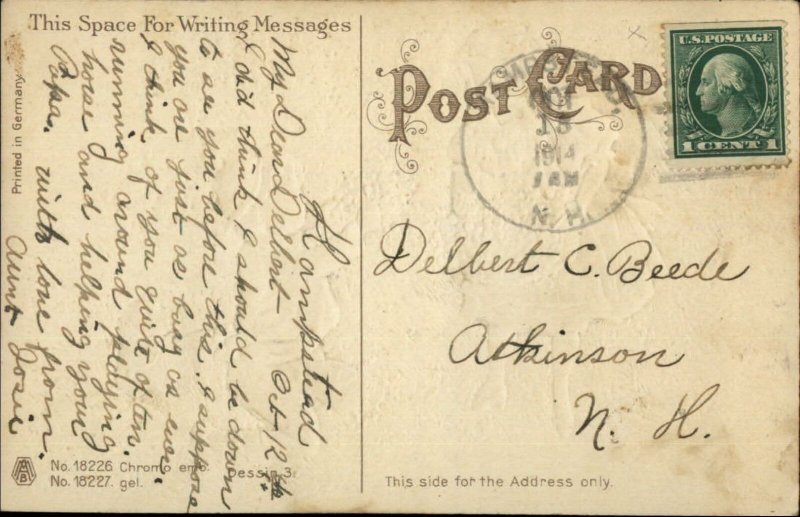 This Space For Writing Messages
Hampstead
Oct 12th
My Dear Delbert
I did think I should be down
to see you before this. I suppose
you are just as busy as ever.
I think of you quite often
running around playing
horse and helping your
Papa. with love from
Aunt Josie
Printed in Germany
No. 18226 Chromo emb. Dessin 3.
No. 18227. gel.
POST CARD
OCT
13
1914
AM
N.H.
U.S. POSTAGE
1 CENT 1
Delbert C. Beede
Atkinson
N. H.
This side for the Address only.